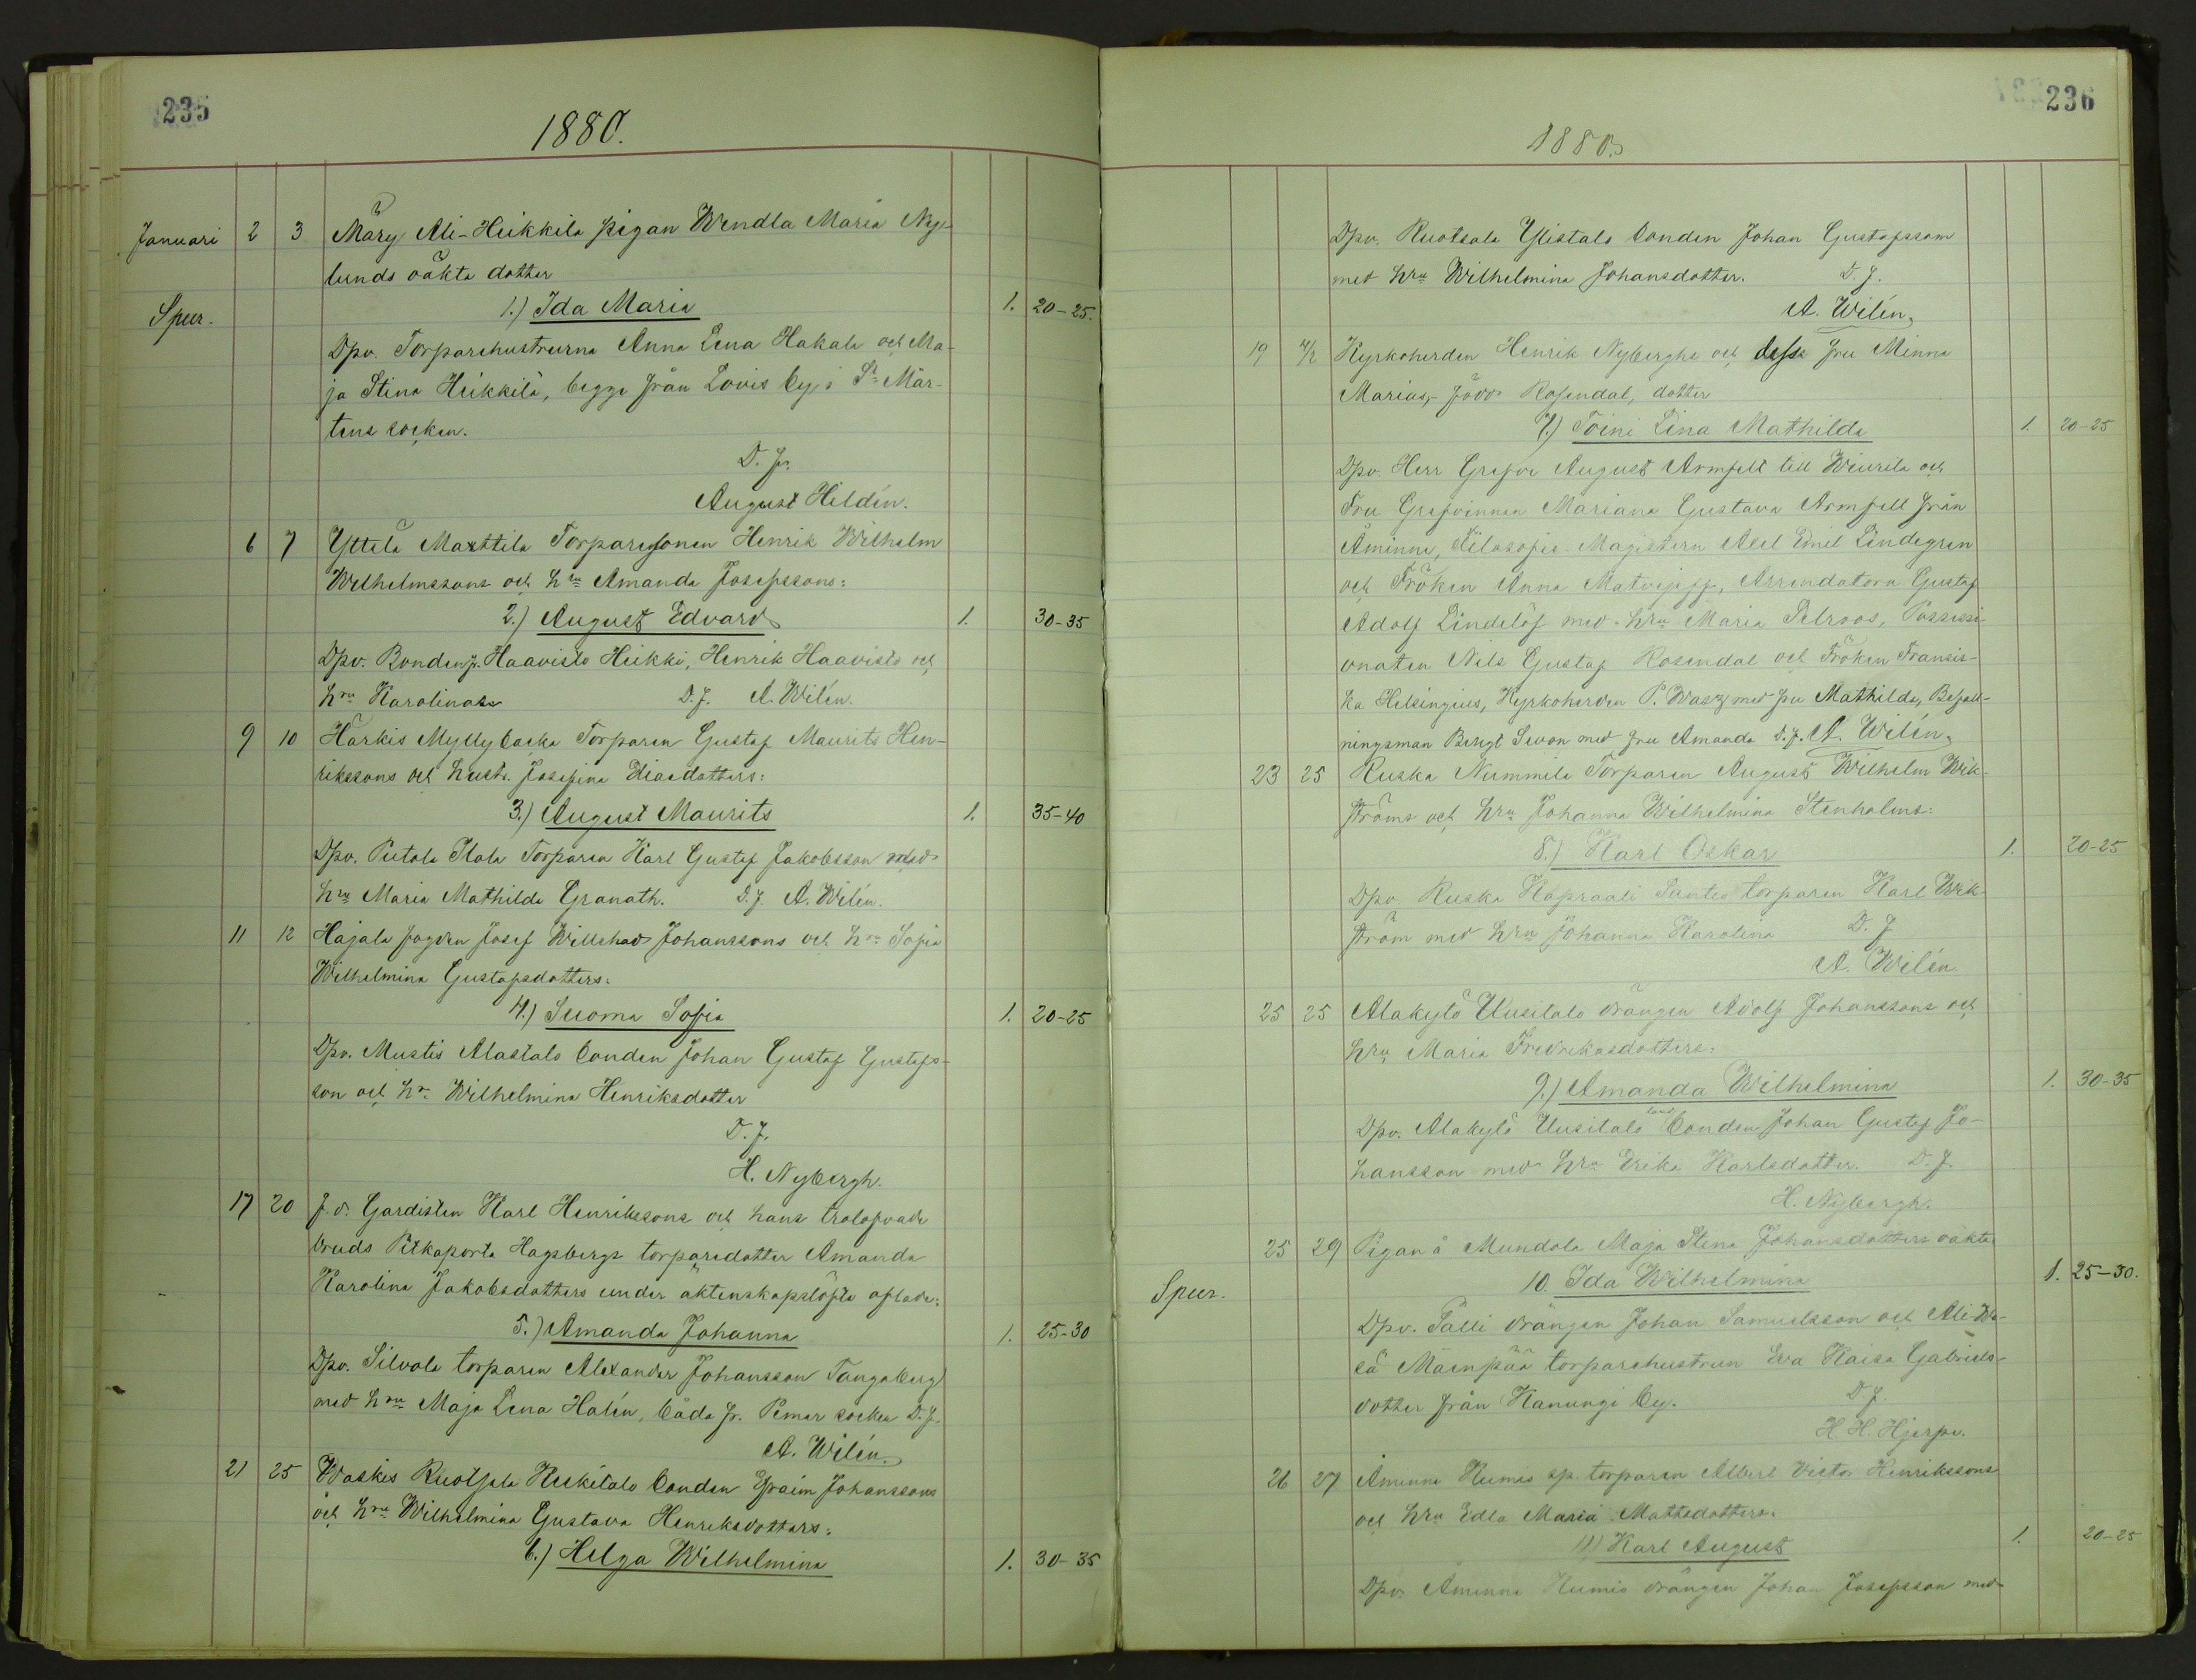 235
1880.
Januari 2 3 Märy Ali-Heikkilä pigan Wendla Maria Ny-
lunds oäkta dotter
Spur. 1.) Ida Maria 1. 20-25.
Dpv. Torparehustrurna Anna Lena Hakala och Ma-
ja Stina Heikkilä, begge från Lovis by i St Mår-
tens socken.
D. f.
August Hildén.
6 7 Yttelä Marttila Torparesonen Henrik Wilhelm
Wilhelmssons och hru Amanda Josefssons:
2.) August Edvard 1. 30-35
Dpv. Bonden fr. Haavisto Heikki, Henrik Haavisto och
hru Karolina D. f. A. Wilén.
9 10 Härkis Myllybacka Torparen Gustaf Maurits Hen-
rikssons och hustr. Josefina Eliaedotters:
3.) August Maurits 1. 35-40
Dpv. Putola Ilola Torparen Karl Gustaf Jakobsson med
hru Maria Mathilda Granath. D. f. A. Wilén.
11 12 Hajala fogden Josef Willehad Johanssons och hru Sofia
Wilhelmina Gustafsdotters:
4.) Suoma Sofia 1. 20-25
Dpv. Mustis Alastalo bonden Johan Gustaf Gustafs-
son och hr. Wilhelmina Henriksdotter
D. f.
H. Nybergh.
17 20 f.d. Gardisten Karl Henrikssons och hans trolofvade
bruds Pitkäporta Hagsbergs torparedotter Amanda
Karolina Jakobsdotters under äktenskapslöfte aflade:
5.) Amanda Johanna 1. 25-30
Dpv. Silvola torparen Alexander Johansson Tangaberg
med hru Maja Lena Halén, båda fr. Pemar socken D. f.
A. Wilén.
21 25 Waskis Ruotsala Heikitalo bonden Efraim Johanssons
och hru Wilhelmina Gustava Henriksdotters:
6.) Helga Wilhelmina 1. 30-35
236
1880.
Dpv. Ruotsala Ylistalo bonden Johan Gustafsson
med hru Wilhelmina Johansdotter. D. f.
A. Wilén.
19 4/2 Kyrkoherden Henrik Nyberghs och dess fru Minna
Marias, född Rosendal, dotter
7.) Toini Lina Mathilda 1. 20-25
Dpv. Herr Grefve August Armfelt till Wiurila och
Fru Grefvinnan Mariana Gustava Armfelt från
Åminne, Filosofie Magistern Axel Emil Lindegren
och Fröken Anna Matvejeff, Arrendatorn Gustaf
Adolf Lindelöf med hru Maria Selroos, Possessi-
onaten Nils Gustaf Rosendal och Fröken Fransis-
ka Helsingius, Kyrkoherden P. Wasz med fru Mathilda, Befall-
ningsman Bengt Swon med fru Amanda D. f. A. Wilén.
23 25 Ruska Nummila Torparen August Wilhelm Wik-
ströms och hru Johanna Wilhelmina Stenholms:
8.) Karl Oskar 1. 20-25
Dpv. Ruska Kapraali Santio torparen Karl Wik-
ström med hru Johanna Karolina D. f
A. Wilén
25 25 Alakylö Uusitalo drängen Adolf Johanssons och
hru Maria Fredrikasdotters:
9.) Amanda Wilhelmina 1. 30-35
Dpv. Alakylö Uusitalo bonden Johan Gustaf Jo-
hansson med hru Erika Karlsdotter. D. f.
H. Nybergh.
25 29 Pigan å Mundola Maja Stina Johansdotters oäkta
Spur. 10. Ida Wilhelmina 1. 25-30.
Dpv. Pälli drängen Johan Samuelsson och Ali-We-
sä Mäenpää torparehustrun Eva Kaisa Gabriels-
dotter från Kanungi by. D f.
H. H. Hjerpe.
26 27 Åminne Humis sp. torparen Albert Victor Henrikssons
och hru Edla Maria Mattsdotters.
11) Karl August 1. 20-25
Dpv. Åminne Humis drängen Johan Josefsson med